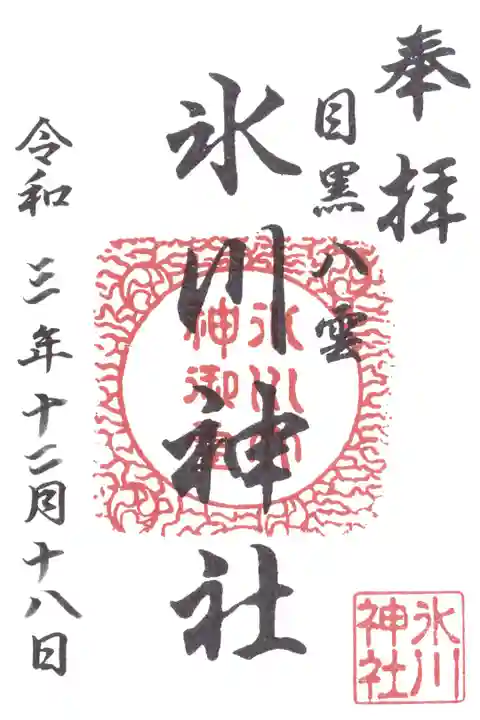 奉拝
目黒八雲
氷川神社
令和三年十二月十八日
氷川神社